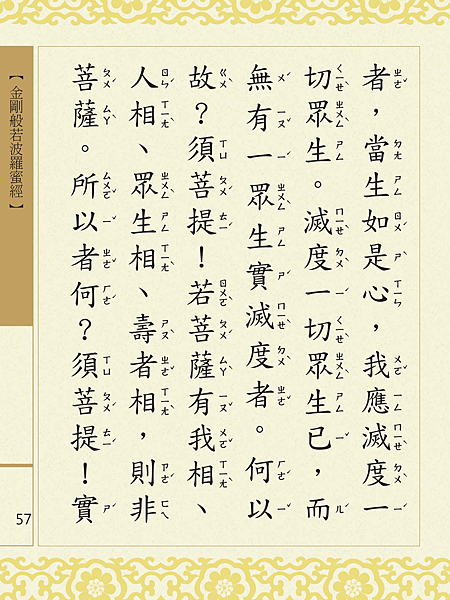 者，當生如是心，我應滅度一
切眾生。滅度一切眾生已，而
無有一眾生實滅度者。何以
故？須菩提！若菩薩有我相、
人相、眾生相、壽者相，則非
菩薩。所以者何？須菩提！實
【金剛般若波羅蜜經】
57